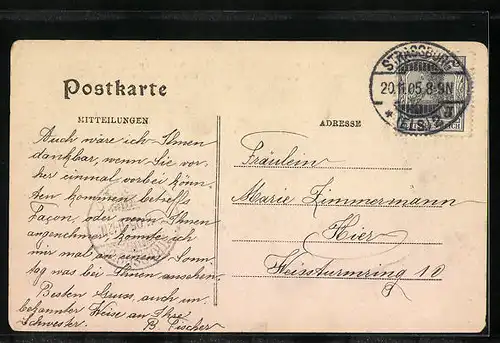 Postkarte
MITTEILUNGEN
ADRESSE
STRASSBURG
20.11.05.8-9N
* (ELS.) 2.
Auch wäre ich Ihnen
dankbar, wenn Sie vor-
her einmal vorbei könn-
ten kommen betreffs
Façon, oder wenn Ihnen
angenehmer könnte ich
mir mal an einem Sonn-
tag was bei Ihnen ansehen.
Besten Gruss, auch un-
bekannter Weise an Ihre
Schwester. B. Fischer
Fräulein
Marie Zimmermann
Hier
Weissturmring 10